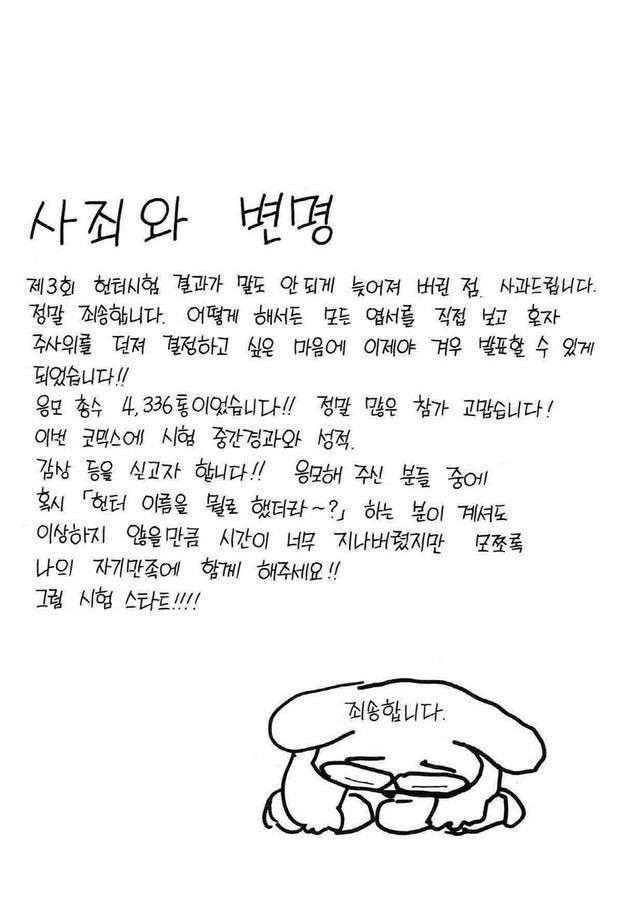 사죄와 변명
제3회 헌터시험 결과가 말도 안되게 늦어져 버린 점. 사과드립니다.
정말 죄송합니다. 어떻게 해서든 모든 엽서를 직접 보고 혼자
주사위를 던져 결정하고 싶은 마음에 이제야 겨우 발표할 수 있게
되었습니다!!
응모 총수 4,336통이었습니다!! 정말 많은 참가 고맙습니다!
이번 코믹스에 시험 중간경과와 성적.
감상 등을 싣고자 합니다!! 응모해 주신 분들 중에
혹시 「헌터 이름을 뭘로 했더라~?」 하는 분이 계셔도
이상하지 않을만큼 시간이 너무 지나버렸지만 모쪼록
나의 자기만족에 함께 해주세요!!
그럼 시험 스타트!!!!
죄송합니다.